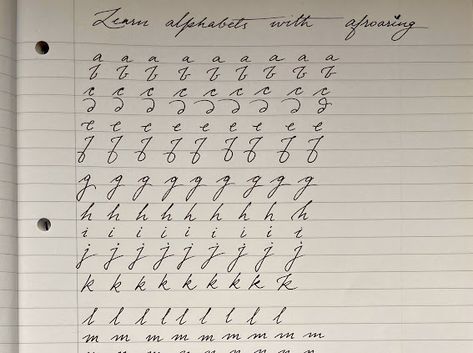 Learn alphabets with afroaring
a a a a a a a a a
b b b b b b b b b
c c c c c c c c c
d d d d d d d d d
e e e e e e e e e
f f f f f f f f f
g g g g g g g g g
h h h h h h h h h
i i i i i i i i i
j j j j j j j j j
k k k k k k k k k
l l l l l l l l l
m m m m m m m m m